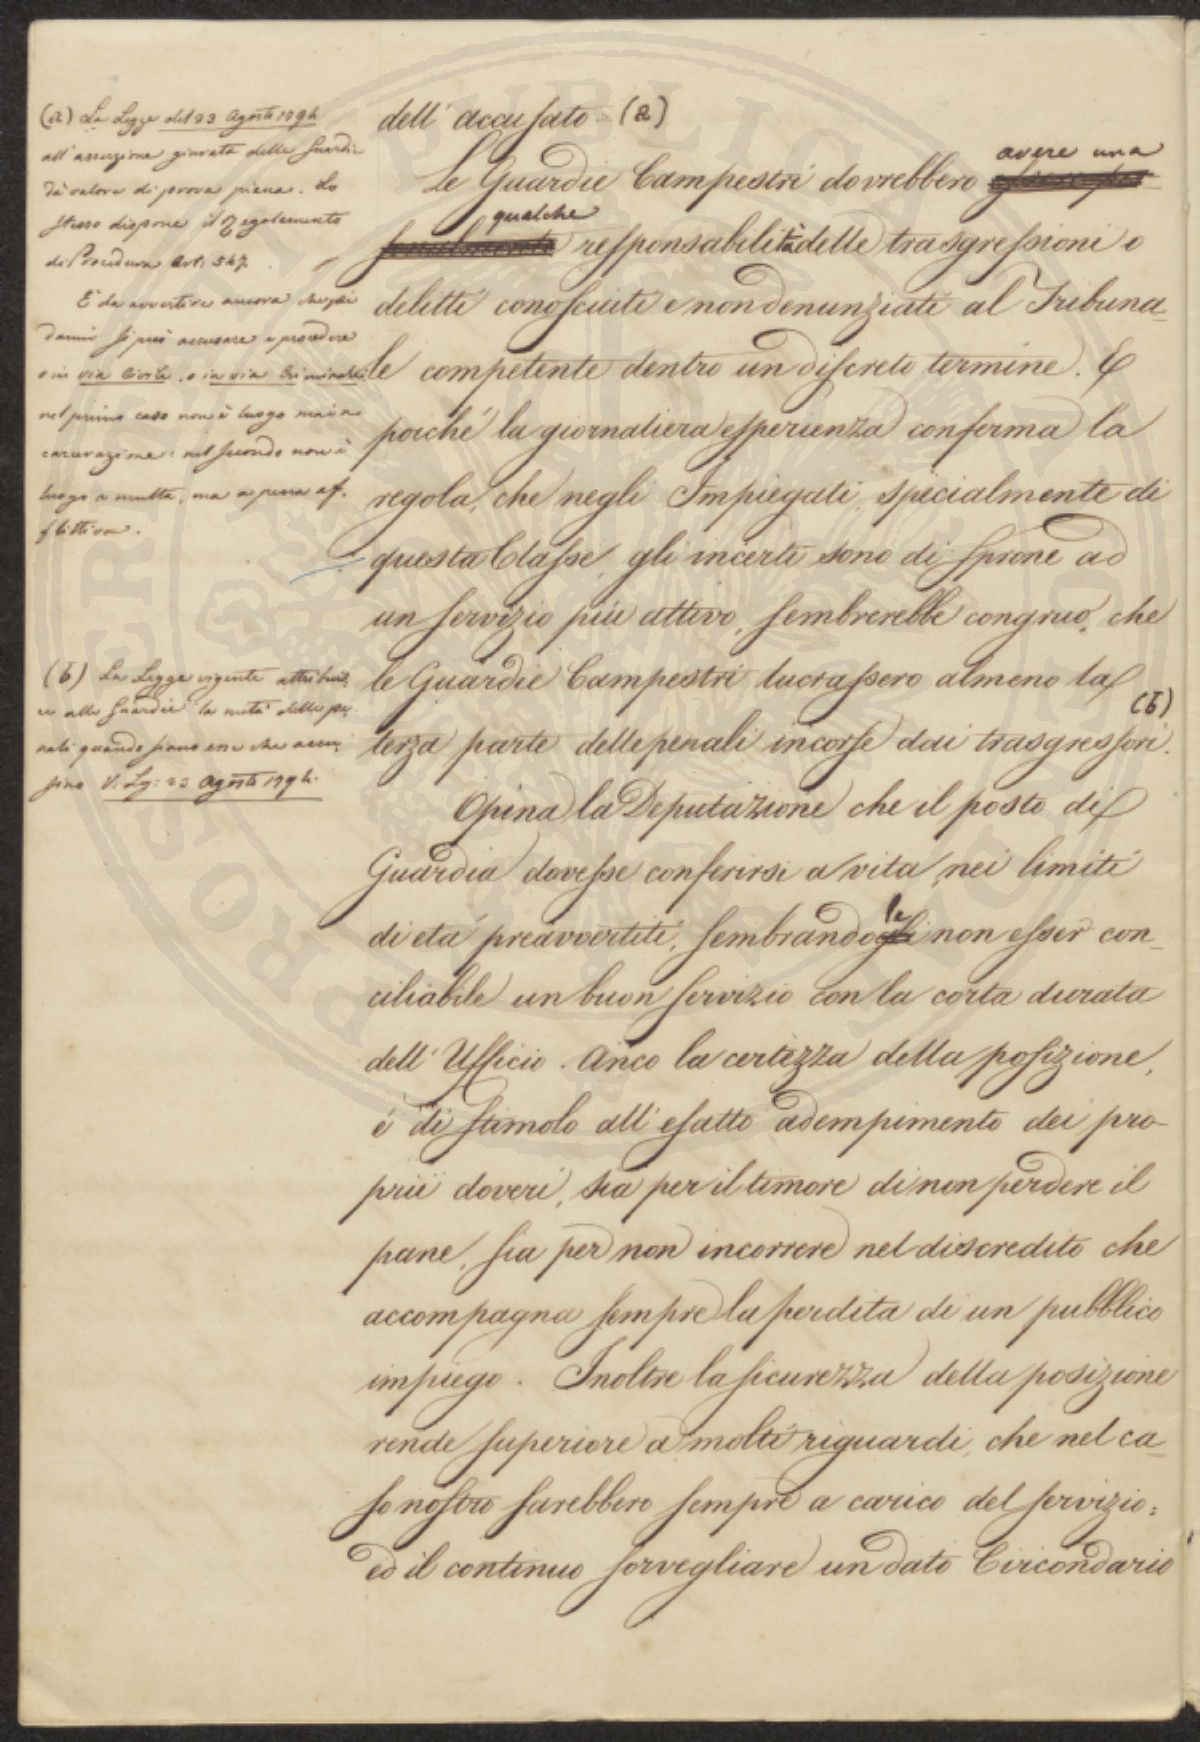 (a) La Legge del 23 Agosto 1794
all'asserzione giurata delle Guardie
dà valore di prova piena. Lo
stesso dispone il Regolamento
di Procedura Art: 547.
E' da avvertire ancora che pei
danni si può accusare e procedere
o in via Civile, o in via Criminale
nel primo caso non è luogo mai a
carcerazione: nel secondo non è
luogo a multa, ma a pena af-
flittiva.
(b) La Legge vigente attribui-
sce alle Guardie la metà delle pe-
nali quando siano esse che accu-
sino V. Leg: 23 Agosto 1794.
dell'accusato (a)
Le Guardie Campestri dovrebbero avere una
qualche responsabilità delle trasgressioni o
delitti conosciuti e non denunziati al Tribuna-
le competente dentro un discreto termine. E
poiché la giornaliera esperienza conferma la
regola, che negli Impiegati, specialmente di
questa Classe, gli incerti sono di sprone ad
un servizio più attivo, sembrerebbe congruo, che
le Guardie Campestri lucrassero almeno la
terza parte delle penali incorse dai trasgressori. (b)
Opina la Deputazione che il posto di
Guardia dovesse conferirsi a vita, nei limiti
di età preavvertiti, sembrandole non esser con-
ciliabile un buon servizio con la corta durata
dell'Ufficio. Anco la certezza della posizione,
é di stimolo all'esatto adempimento dei pro-
prii doveri, sia per il timore di non perdere il
pane, sia per non incorrere nel discredito che
accompagna sempre la perdita di un pubblico
impiego. Inoltre la sicurezza della posizione
rende superiore a molti riguardi, che nel ca-
so nostro sarebbero sempre a carico del servizio;
ed il continuo sorvegliare un dato Circondario